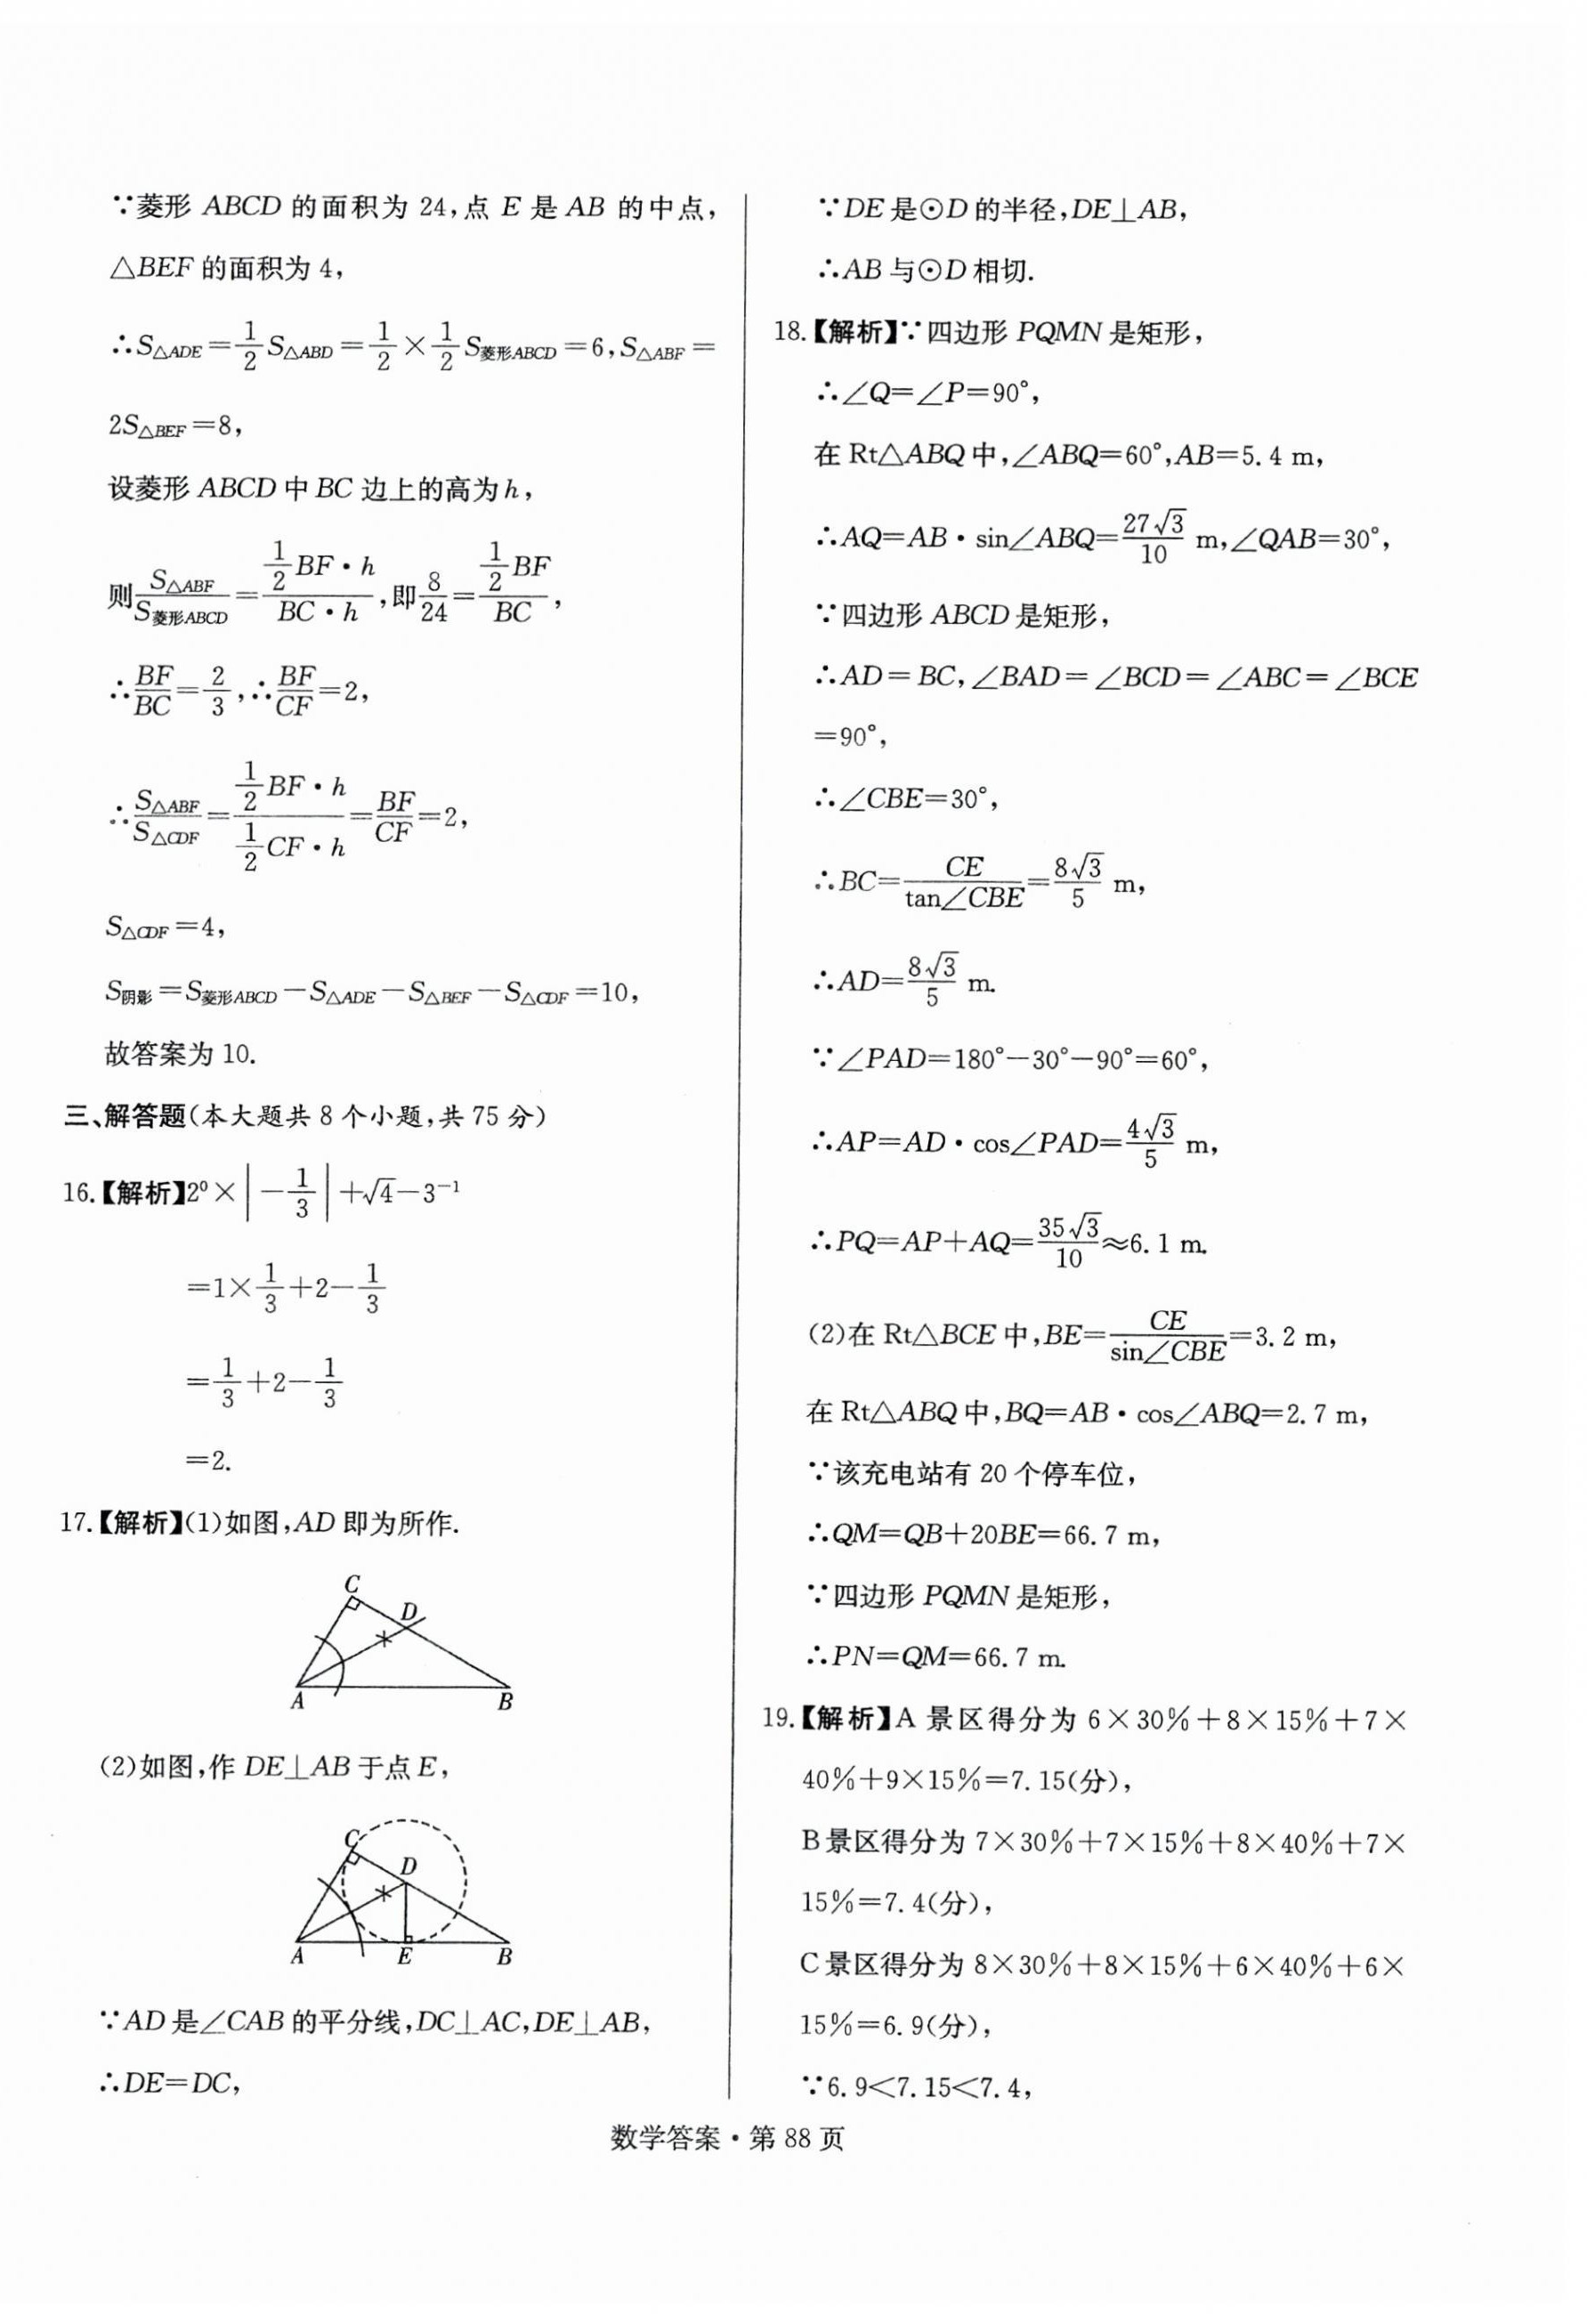 ∵菱形 ABCD 的面积为 24,点 E 是 AB 的中点,
△BEF 的面积为 4,
∴S△ADE=1/2 S△ABD=1/2×1/2 S菱形ABCD=6,S△ABF=
2S△BEF=8,
设菱形 ABCD 中 BC 边上的高为 h,
则 S△ABF/S菱形ABCD=(1/2 BF·h)/(BC·h),即 8/24=(1/2 BF)/BC,
∴BF/BC=2/3,∴BF/CF=2,
∴S△ABF/S△CDF=(1/2 BF·h)/(1/2 CF·h)=BF/CF=2,
S△CDF=4,
S阴影=S菱形ABCD-S△ADE-S△BEF-S△CDF=10,
故答案为 10.
三、解答题(本大题共 8 个小题,共 75 分)
16.【解析】2⁰×|-1/3|+√4-3⁻¹
=1×1/3+2-1/3
=1/3+2-1/3
=2.
17.【解析】(1)如图,AD 即为所作.
C
D
A
B
(2)如图,作 DE⊥AB 于点 E,
C
D
A
E
B
∵AD 是∠CAB 的平分线,DC⊥AC,DE⊥AB,
∴DE=DC,
∵DE 是⊙D 的半径,DE⊥AB,
∴AB 与⊙D 相切.
18.【解析】∵四边形 PQMN 是矩形,
∴∠Q=∠P=90°,
在 Rt△ABQ 中,∠ABQ=60°,AB=5.4 m,
∴AQ=AB·sin∠ABQ=27√3/10 m,∠QAB=30°,
∵四边形 ABCD 是矩形,
∴AD=BC,∠BAD=∠BCD=∠ABC=∠BCE
=90°,
∴∠CBE=30°,
∴BC=CE/tan∠CBE=8√3/5 m,
∴AD=8√3/5 m.
∵∠PAD=180°-30°-90°=60°,
∴AP=AD·cos∠PAD=4√3/5 m,
∴PQ=AP+AQ=35√3/10≈6.1 m.
(2)在 Rt△BCE 中,BE=CE/sin∠CBE=3.2 m,
在 Rt△ABQ 中,BQ=AB·cos∠ABQ=2.7 m,
∵该充电站有 20 个停车位,
∴QM=QB+20BE=66.7 m,
∵四边形 PQMN 是矩形,
∴PN=QM=66.7 m.
19.【解析】A 景区得分为 6×30%+8×15%+7×
40%+9×15%=7.15(分),
B 景区得分为 7×30%+7×15%+8×40%+7×
15%=7.4(分),
C 景区得分为 8×30%+8×15%+6×40%+6×
15%=6.9(分),
∵6.9<7.15<7.4,
数学答案·第 88 页